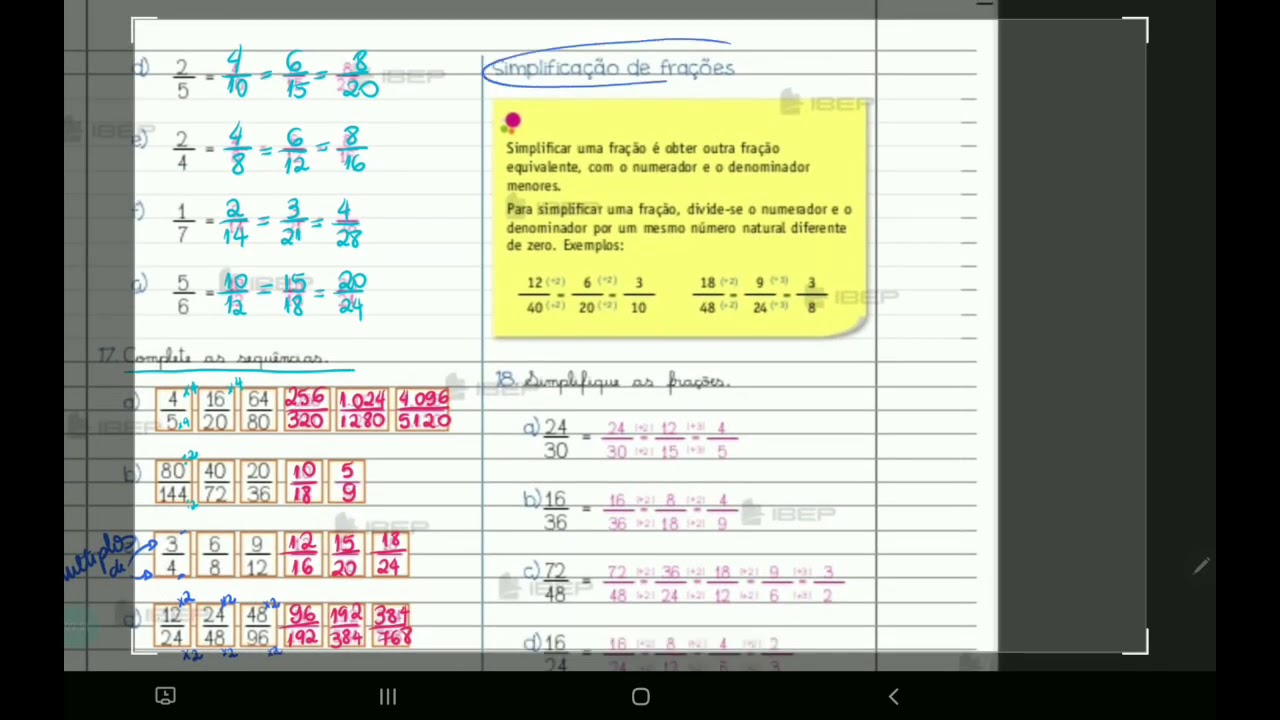 d) 2/5 = 4/10 = 6/15 = 8/20
e) 2/4 = 4/8 = 6/12 = 8/16
f) 1/7 = 2/14 = 3/21 = 4/28
g) 5/6 = 10/12 = 15/18 = 20/24
17. Complete as sequências.
a) 4/5 16/20 64/80 256/320 1.024/1280 4.096/5120
b) 80/144 40/72 20/36 10/18 5/9
3/4 6/8 9/12 12/16 15/20 18/24
d) 12/24 24/48 48/96 96/192 192/384 384/768
Simplificação de frações
Simplificar uma fração é obter outra fração
equivalente, com o numerador e o denominador
menores.
Para simplificar uma fração, divide-se o numerador e o
denominador por um mesmo número natural diferente
de zero. Exemplos:
12/40 (÷2)/(÷2) = 6/20 (÷2)/(÷2) = 3/10 18/48 (÷2)/(÷2) = 9/24 (÷3)/(÷3) = 3/8
18. Simplifique as frações.
a) 24/30 = 24/30 (÷2)/(÷2) = 12/15 (÷3)/(÷3) = 4/5
b) 16/36 = 16/36 (÷2)/(÷2) = 8/18 (÷2)/(÷2) = 4/9
c) 72/48 = 72/48 (÷2)/(÷2) = 36/24 (÷2)/(÷2) = 18/12 (÷2)/(÷2) = 9/6 (÷3)/(÷3) = 3/2
d) 16/24 = 16/24 = 8/12 = 4/6 = 2/3
IBEP